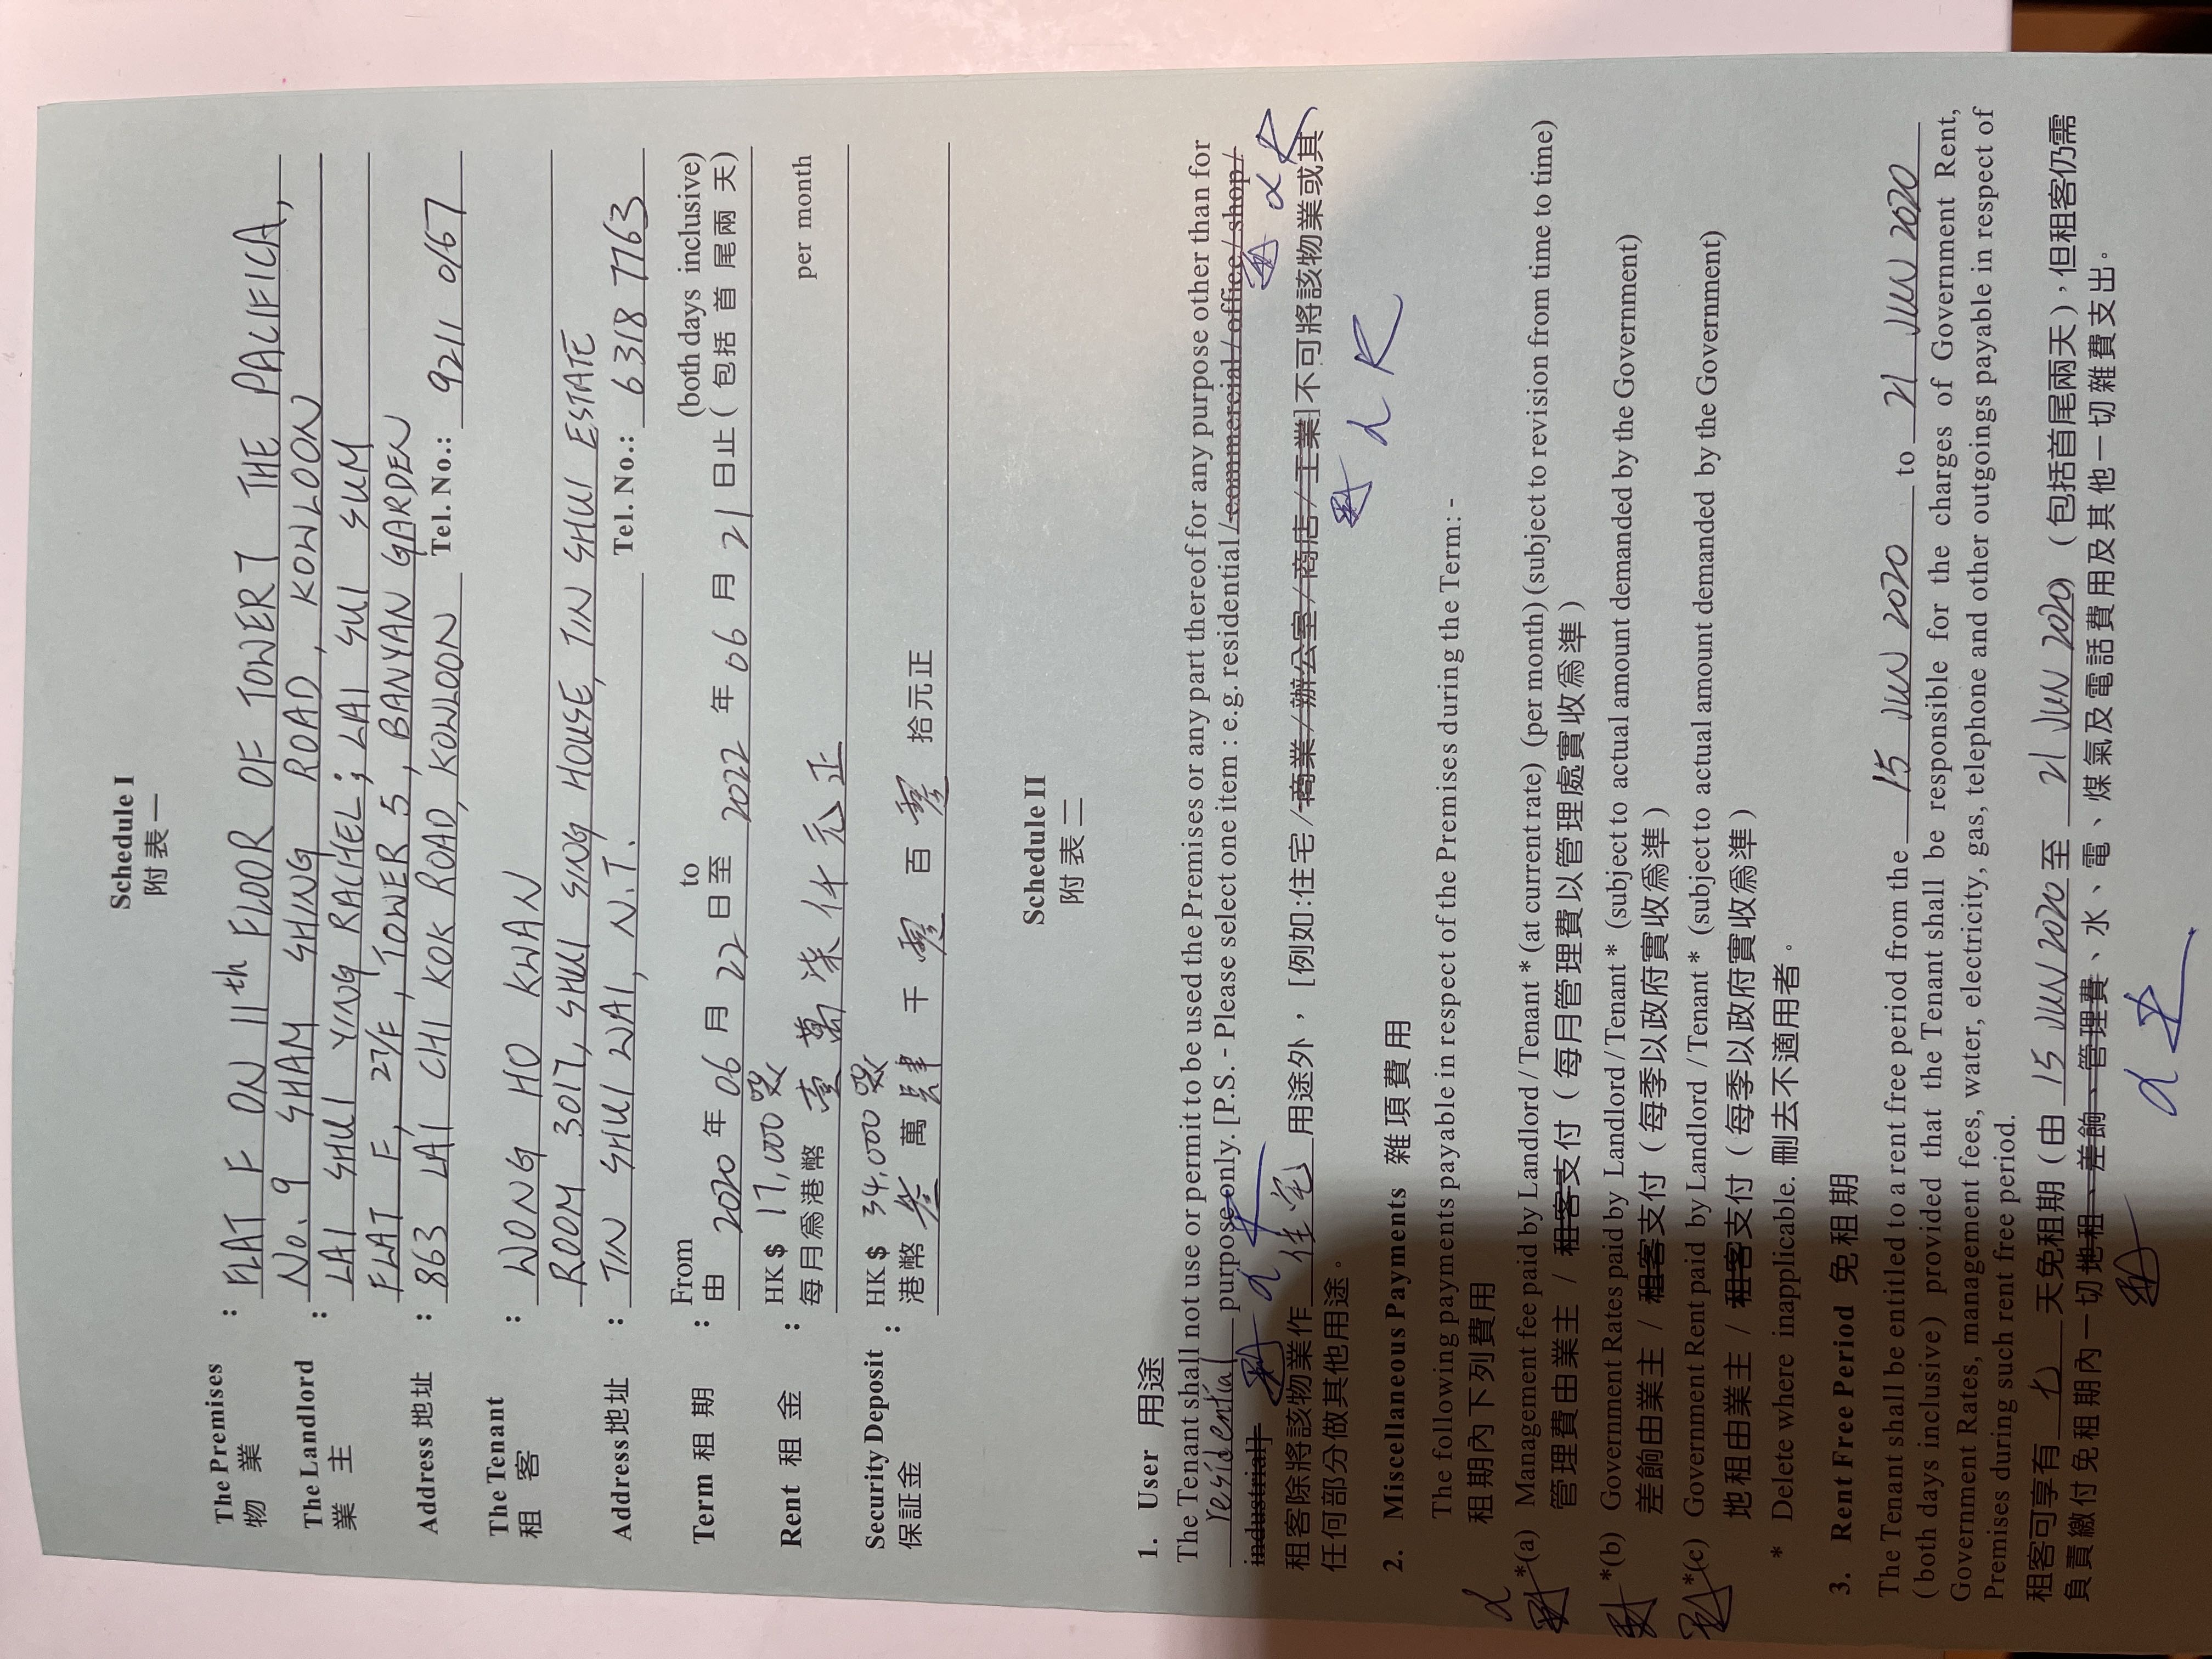 Schedule I
附表一
The Premises : FLAT F ON 11th FLOOR OF TOWER 7 THE PACIFICA,
物業 No. 9 SHAM SHING ROAD, KOWLOON
The Landlord : LAI SHUI YING RACHEL; LAI SUI SUM
業主 FLAT F, 27/F, TOWER 5, BANYAN GARDEN
Address地址 : 863 LAI CHI KOK ROAD, KOWLOON Tel. No.: 9211 0167
The Tenant : WONG HO KWAN
租客 ROOM 3017, SHUI SING HOUSE, TIN SHUI ESTATE
Address地址 : TIN SHUI WAI, N.T. Tel. No.: 6318 7763
From to (both days inclusive)
Term 租期 : 由 2020 年 06 月 22 日至 2022 年 06 月 21 日止 (包括首尾兩天)
Rent 租金 : HK$ 17,000 per month
每月為港幣 壹萬柒仟元正
Security Deposit : HK$ 34,000
保証金 港幣 叁 萬 肆 千 零 百 零 拾元正
Schedule II
附表二
1. User 用途
The Tenant shall not use or permit to be used the Premises or any part thereof for any purpose other than for
residential purpose only. [P.S. - Please select one item : e.g. residential / commercial / office / shop /
industrial]
租客除將該物業作 住宅 用途外，[例如:住宅/商業/辦公室/商店/工業]不可將該物業或其
任何部分做其他用途。
2. Miscellaneous Payments 雜項費用
The following payments payable in respect of the Premises during the Term: -
租期內下列費用
*(a) Management fee paid by Landlord / Tenant * (at current rate) (per month) (subject to revision from time to time)
管理費由業主 / 租客支付（每月管理費以管理處實收為準）
*(b) Government Rates paid by Landlord / Tenant * (subject to actual amount demanded by the Government)
差餉由業主 / 租客支付（每季以政府實收為準）
*(c) Government Rent paid by Landlord / Tenant * (subject to actual amount demanded by the Government)
地租由業主 / 租客支付（每季以政府實收為準）
* Delete where inapplicable. 刪去不適用者。
3. Rent Free Period 免租期
The Tenant shall be entitled to a rent free period from the 15 JUN 2020 to 21 JUN 2020
(both days inclusive) provided that the Tenant shall be responsible for the charges of Government Rent,
Government Rates, management fees, water, electricity, gas, telephone and other outgoings payable in respect of
Premises during such rent free period.
租客可享有 七 天免租期（由 15 JUN 2020 至 21 JUN 2020）（包括首尾兩天），但租客仍需
負責繳付免租期內一切地租、差餉、管理費、水、電、煤氣及電話費用及其他一切雜費支出。